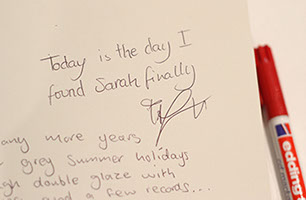 Today is the day I
found Sarah finally
any more years
grey Summer holidays
double glaze with
and a few records...
edding